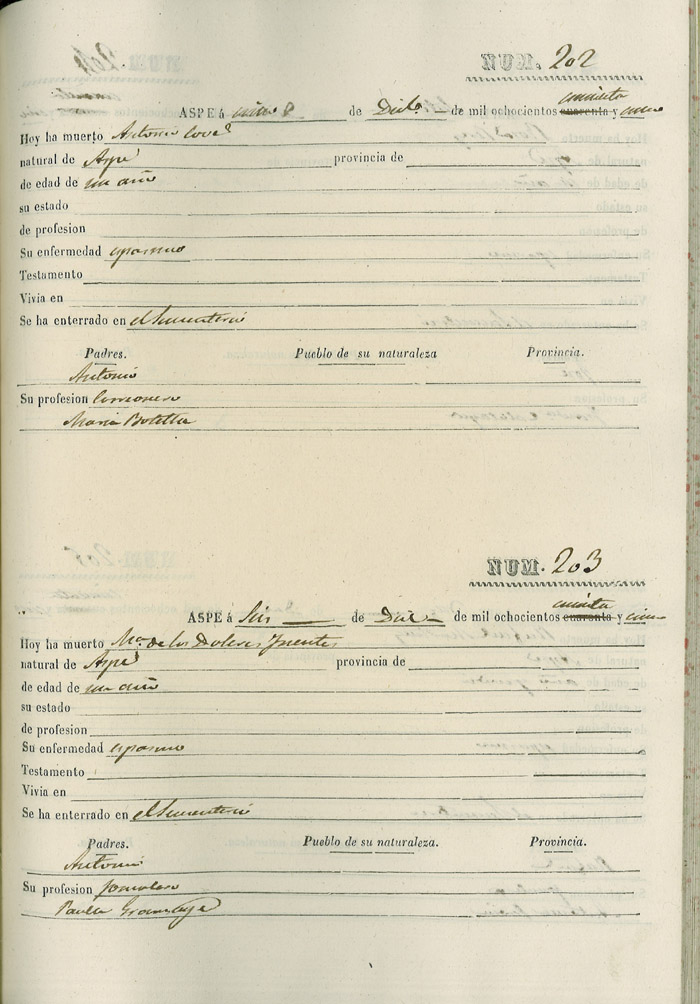 NUM. 202
cincuenta
ASPE á cinco de Dicbe. de mil ochocientos cuarenta y cinco
Hoy ha muerto Antonio Cové
natural de Aspe provincia de
de edad de un año
su estado
de profesion
Su enfermedad espasmo
Testamento
Vivia en
Se ha enterrado en el Sementerio
Padres. Pueblo de su naturaleza Provincia.
Antonio
Su profesion
Maria Botella
NUM. 203
cincuenta
ASPE á Seis de Dice de mil ochocientos cuarenta y cinco
Hoy ha muerto Ma. de los Dolores Fuentes
natural de Aspe provincia de
de edad de un año
su estado
de profesion
Su enfermedad espasmo
Testamento
Vivia en
Se ha enterrado en el Sementerio
Padres. Pueblo de su naturaleza. Provincia.
Antonio
Su profesion Jornalero
Paula Gramage